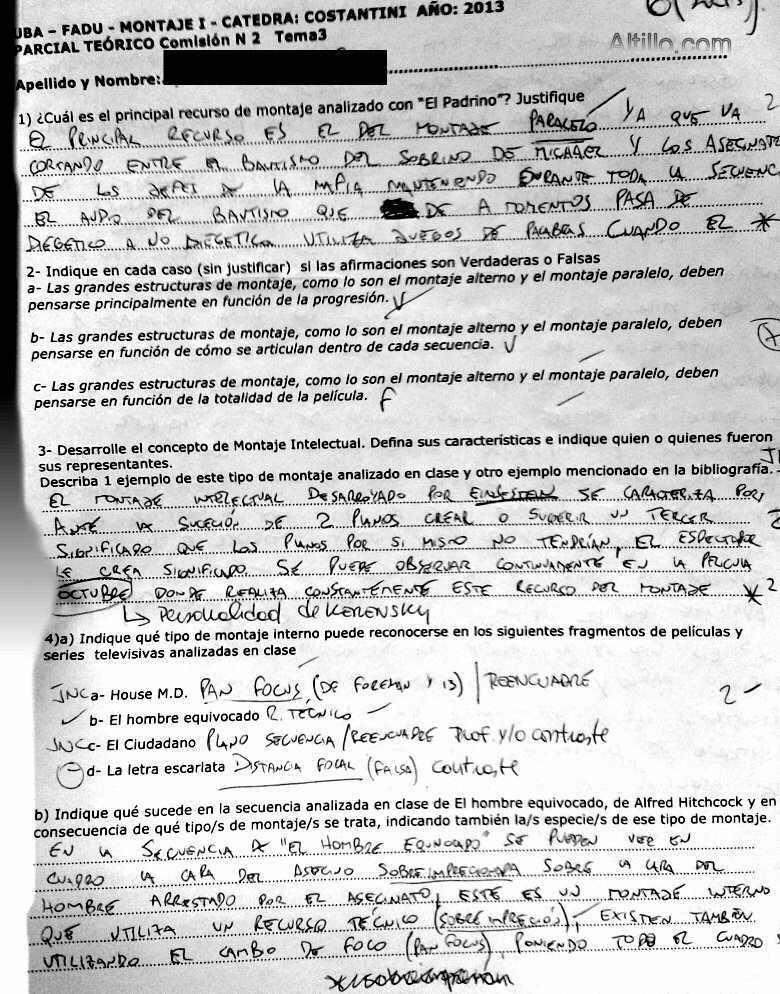 UBA – FADU - MONTAJE I - CATEDRA: COSTANTINI AÑO: 2013
PARCIAL TEÓRICO Comisión N 2 Tema3
Altillo.com
Apellido y Nombre:
1) ¿Cuál es el principal recurso de montaje analizado con "El Padrino"? Justifique
2
EL PRINCIPAL RECURSO ES EL DEL MONTAJE PARALELO YA QUE VA
CORTANDO ENTRE EL BAUTISMO DEL SOBRINO DE MICHAEL Y LOS ASECINATO
DE LOS JEFES DE LA MAFIA MANTENIENDO DURANTE TODA LA SECUENC
EL AUDIO DEL BAUTISMO QUE DE A MOMENTOS PASA DE
DIEGETICO A NO DIEGETICO UTILIZA JUEGOS DE PALABRAS CUANDO EL *
2- Indique en cada caso (sin justificar) si las afirmaciones son Verdaderas o Falsas
a- Las grandes estructuras de montaje, como lo son el montaje alterno y el montaje paralelo, deben
pensarse principalmente en función de la progresión. V
b- Las grandes estructuras de montaje, como lo son el montaje alterno y el montaje paralelo, deben
pensarse en función de cómo se articulan dentro de cada secuencia. V
c- Las grandes estructuras de montaje, como lo son el montaje alterno y el montaje paralelo, deben
pensarse en función de la totalidad de la película. F
3- Desarrolle el concepto de Montaje Intelectual. Defina sus características e indique quien o quienes fueron
sus representantes.
Describa 1 ejemplo de este tipo de montaje analizado en clase y otro ejemplo mencionado en la bibliografía.
EL MONTAJE INTELECTUAL DESARROYADO POR EINSESTEIN SE CARACTERIZA POR,
ANTE LA SUCECIÓN DE 2 PLANOS CREAR O SUGERIR UN TERCER
SIGNIFICADO QUE LOS PLANOS POR SI MISMO NO TENDRÍAN, EL ESPECTADOR
LE CREA SIGNIFICADO. SE PUEDE OBSERVAR CONTINUAMENTE EN LA PELICULA
OCTUBRE DONDE REALIZA CONSTANTEMENTE ESTE RECURSO DEL MONTAJE *2
Personalidad de KERENSKY
4)a) Indique qué tipo de montaje interno puede reconocerse en los siguientes fragmentos de películas y
series televisivas analizadas en clase
INC a- House M.D. PAN FOCUS, (DE FOREMAN Y 13) | REENCUADRE
2 -
b- El hombre equivocado R. TECNICO
INC c- El Ciudadano PLANO SECUENCIA / REENCUADRE Prof. y/o contraste
d- La letra escarlata DISTANCIA FOCAL (FALSA) contraste
b) Indique qué sucede en la secuencia analizada en clase de El hombre equivocado, de Alfred Hitchcock y en
consecuencia de qué tipo/s de montaje/s se trata, indicando también la/s especie/s de ese tipo de montaje.
EN LA SECUENCIA DE "EL HOMBRE EQUIVOCADO" SE PUEDEN VER EN
CUADRO LA CARA DEL ASECINO SOBREIMPRECIONADA SOBRE LA CARA DEL
HOMBRE ARRESTADO POR EL ASECINATO, ESTE ES UN MONTAJE INTERNO
QUE UTILIZA UN RECURSO TÉCNICO (SOBREIMPRECIÓN), EXISTEN TAMBIEN
UTILIZANDO EL CAMBIO DE FOCO (PAN FOCUS), PONIENDO TODO EL CUADRO